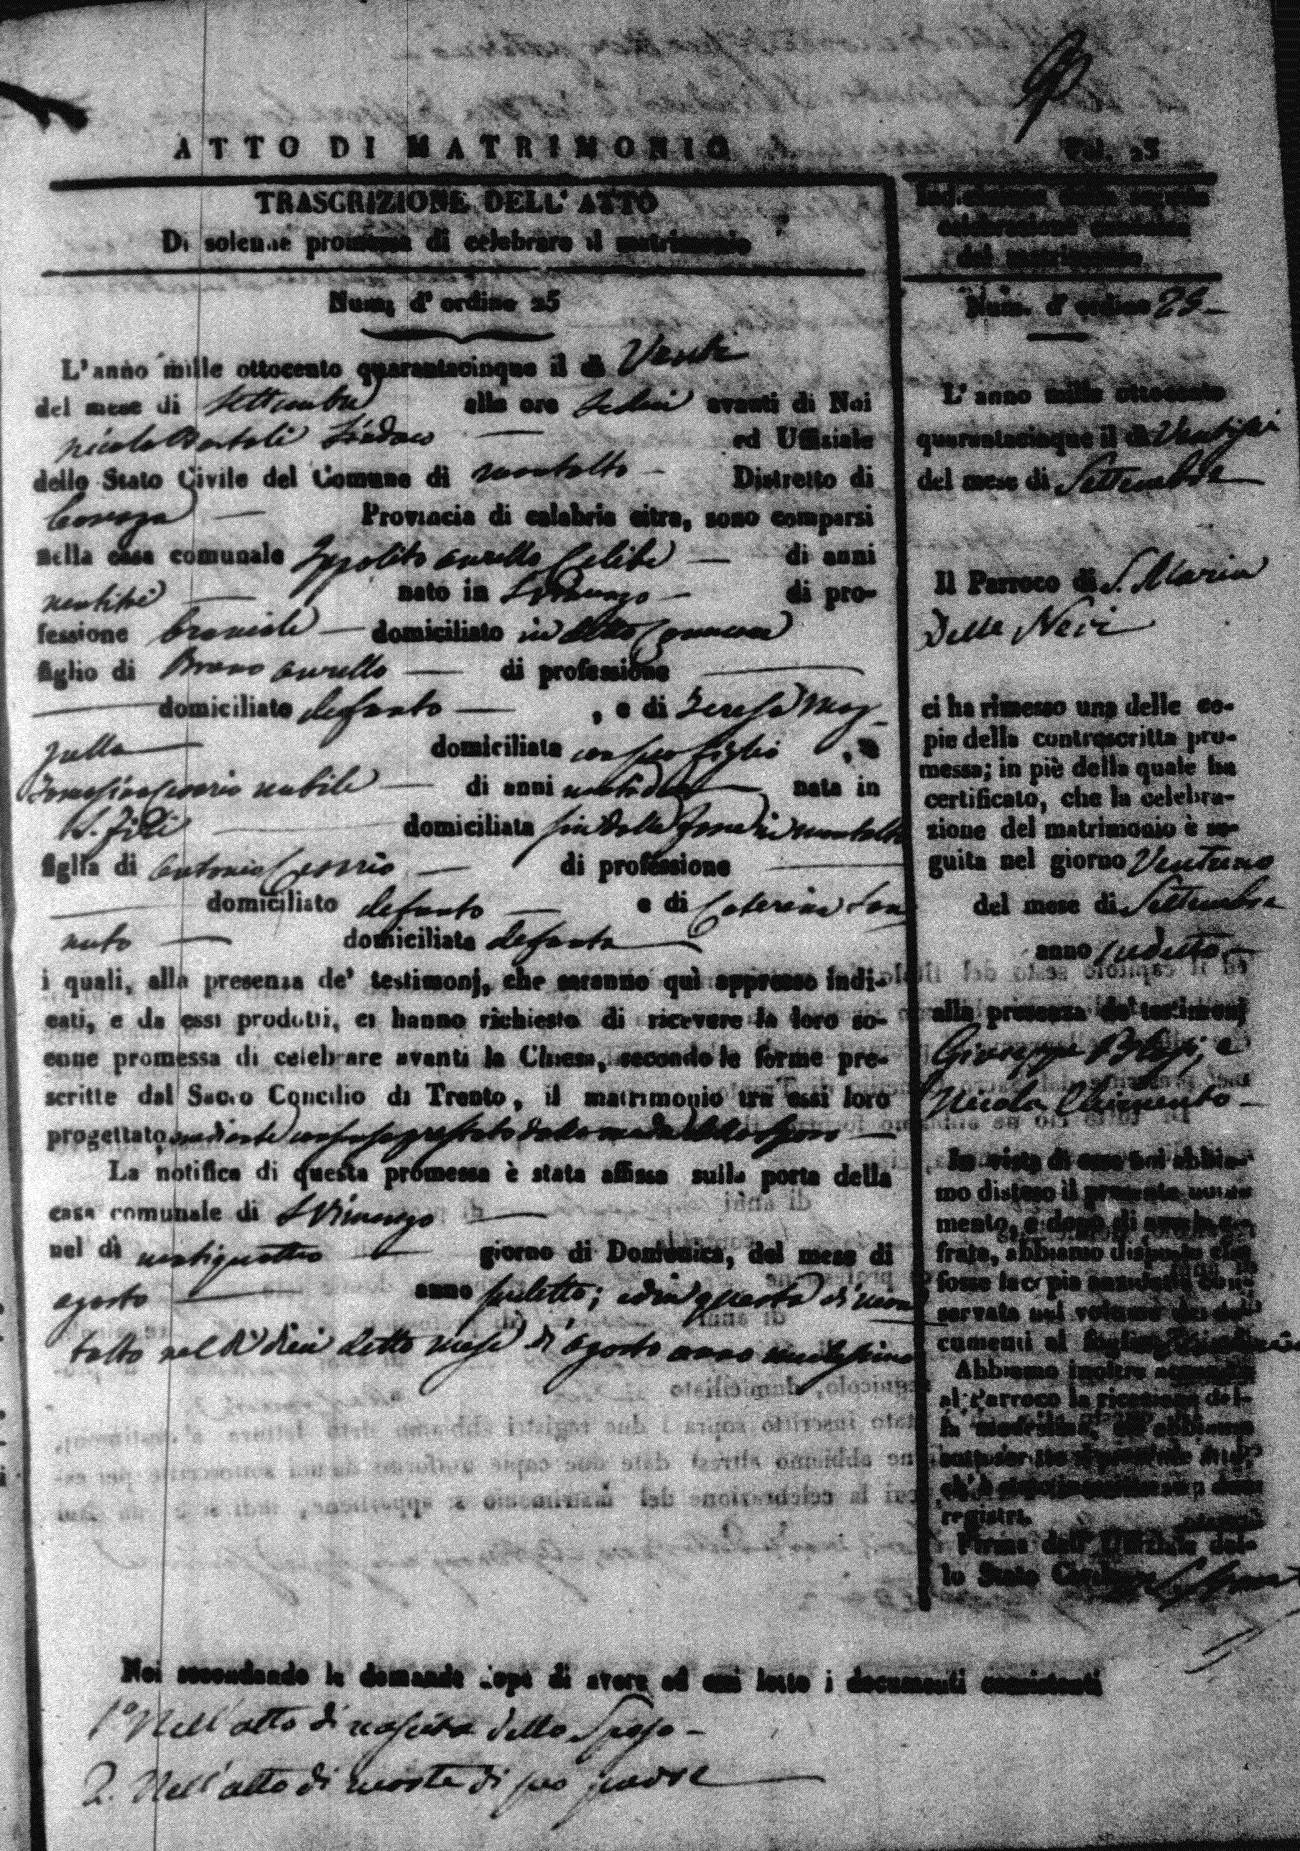 ATTO DI MATRIMONIO
TRASCRIZIONE DELL' ATTO
Di solenne promessa di celebrare il matrimonio
Num, d' ordine 25
L' anno mille ottocento quarantacinque il dì Venti
del mese di Settembre alle ore sedici avanti di Noi
Nicola Bartoli Sindaco ed Uffiziale
dello Stato Civile del Comune di Montalto Distretto di
Cosenza Provincia di calabria citra, sono comparsi
nella casa comunale Ippolito Aurello Celibe di anni
nato in S. Vincenzo di pro-
fessione Bracciale domiciliato in detto Comune
figlio di Bruno Aurello di professione
domiciliato defunto , e di Teresa Maz-
zulla domiciliata con suo figlio , e
Tomasina Cesario nubile di anni nata in
S. Fili domiciliata in Montalto
figlia di Antonio Cesario di professione
domiciliato defunto e di Caterina San
nuto domiciliata defunta
i quali, alla presenza de' testimonj, che saranno quì appresso indi-
cati, e da essi prodotti, ci hanno richiesto di ricevere la loro so-
enne promessa di celebrare avanti la Chiesa, secondo le forme pre-
scritte dal Sacro Concilio di Trento, il matrimonio tra essi loro
progettato, mediante consenso prestato dalla madre dello sposo
La notifica di questa promessa è stata affissa sulla porta della
casa comunale di S. Vincenzo
nel dì ventiquattro giorno di Domenica, del mese di
agosto anno suddetto; ed in questa di Mon
talto nel dì dieci detto mese di agosto anno medesimo
Noi secondando le domande dopo di avere ad essi letto i documenti consistenti
1° Nell' atto di nascita dello Sposo -
2. Nell' atto di morte di suo padre
Vol. 25
Indicazione della seguita
celebrazione canonica
del matrimonio
Num. d' ordine 25
L' anno mille ottocento
quarantacinque il dì Ventisei
del mese di Settembre
Il Parroco di S. Maria
Della Neve
ci ha rimesso una delle co-
pie della controscritta pro-
messa; in piè della quale ha
certificato, che la celebra-
zione del matrimonio è se-
guita nel giorno Ventuno
del mese di Settembre
anno suddetto
alla presenza de' testimonj
Giuseppe Blasi, e
Nicola Chimento
In vista di esso noi abbia-
mo disteso il presente notam-
mento, e dopo di averla ci-
frata, abbiamo disposto che
fosse la copia anzidetta con-
servata nel volume dei do-
cumenti al foglio
Abbiamo inoltre accusato
al Parroco la ricezione del-
la medesima, ed abbiamo
sottoscritto il presente atto,
ch' è stato inscritto su i due
registri.
Firma dell' Uffiziale del-
lo Stato Civile